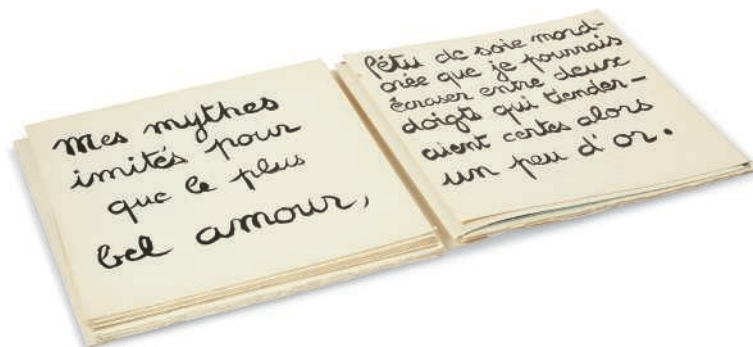 Mes mythes
imités pour
que le plus
bel amour,
fétu de soie mord-
orée que je pourrais
écraser entre deux
doigts qui tiender-
aient certes alors
un peu d'or.